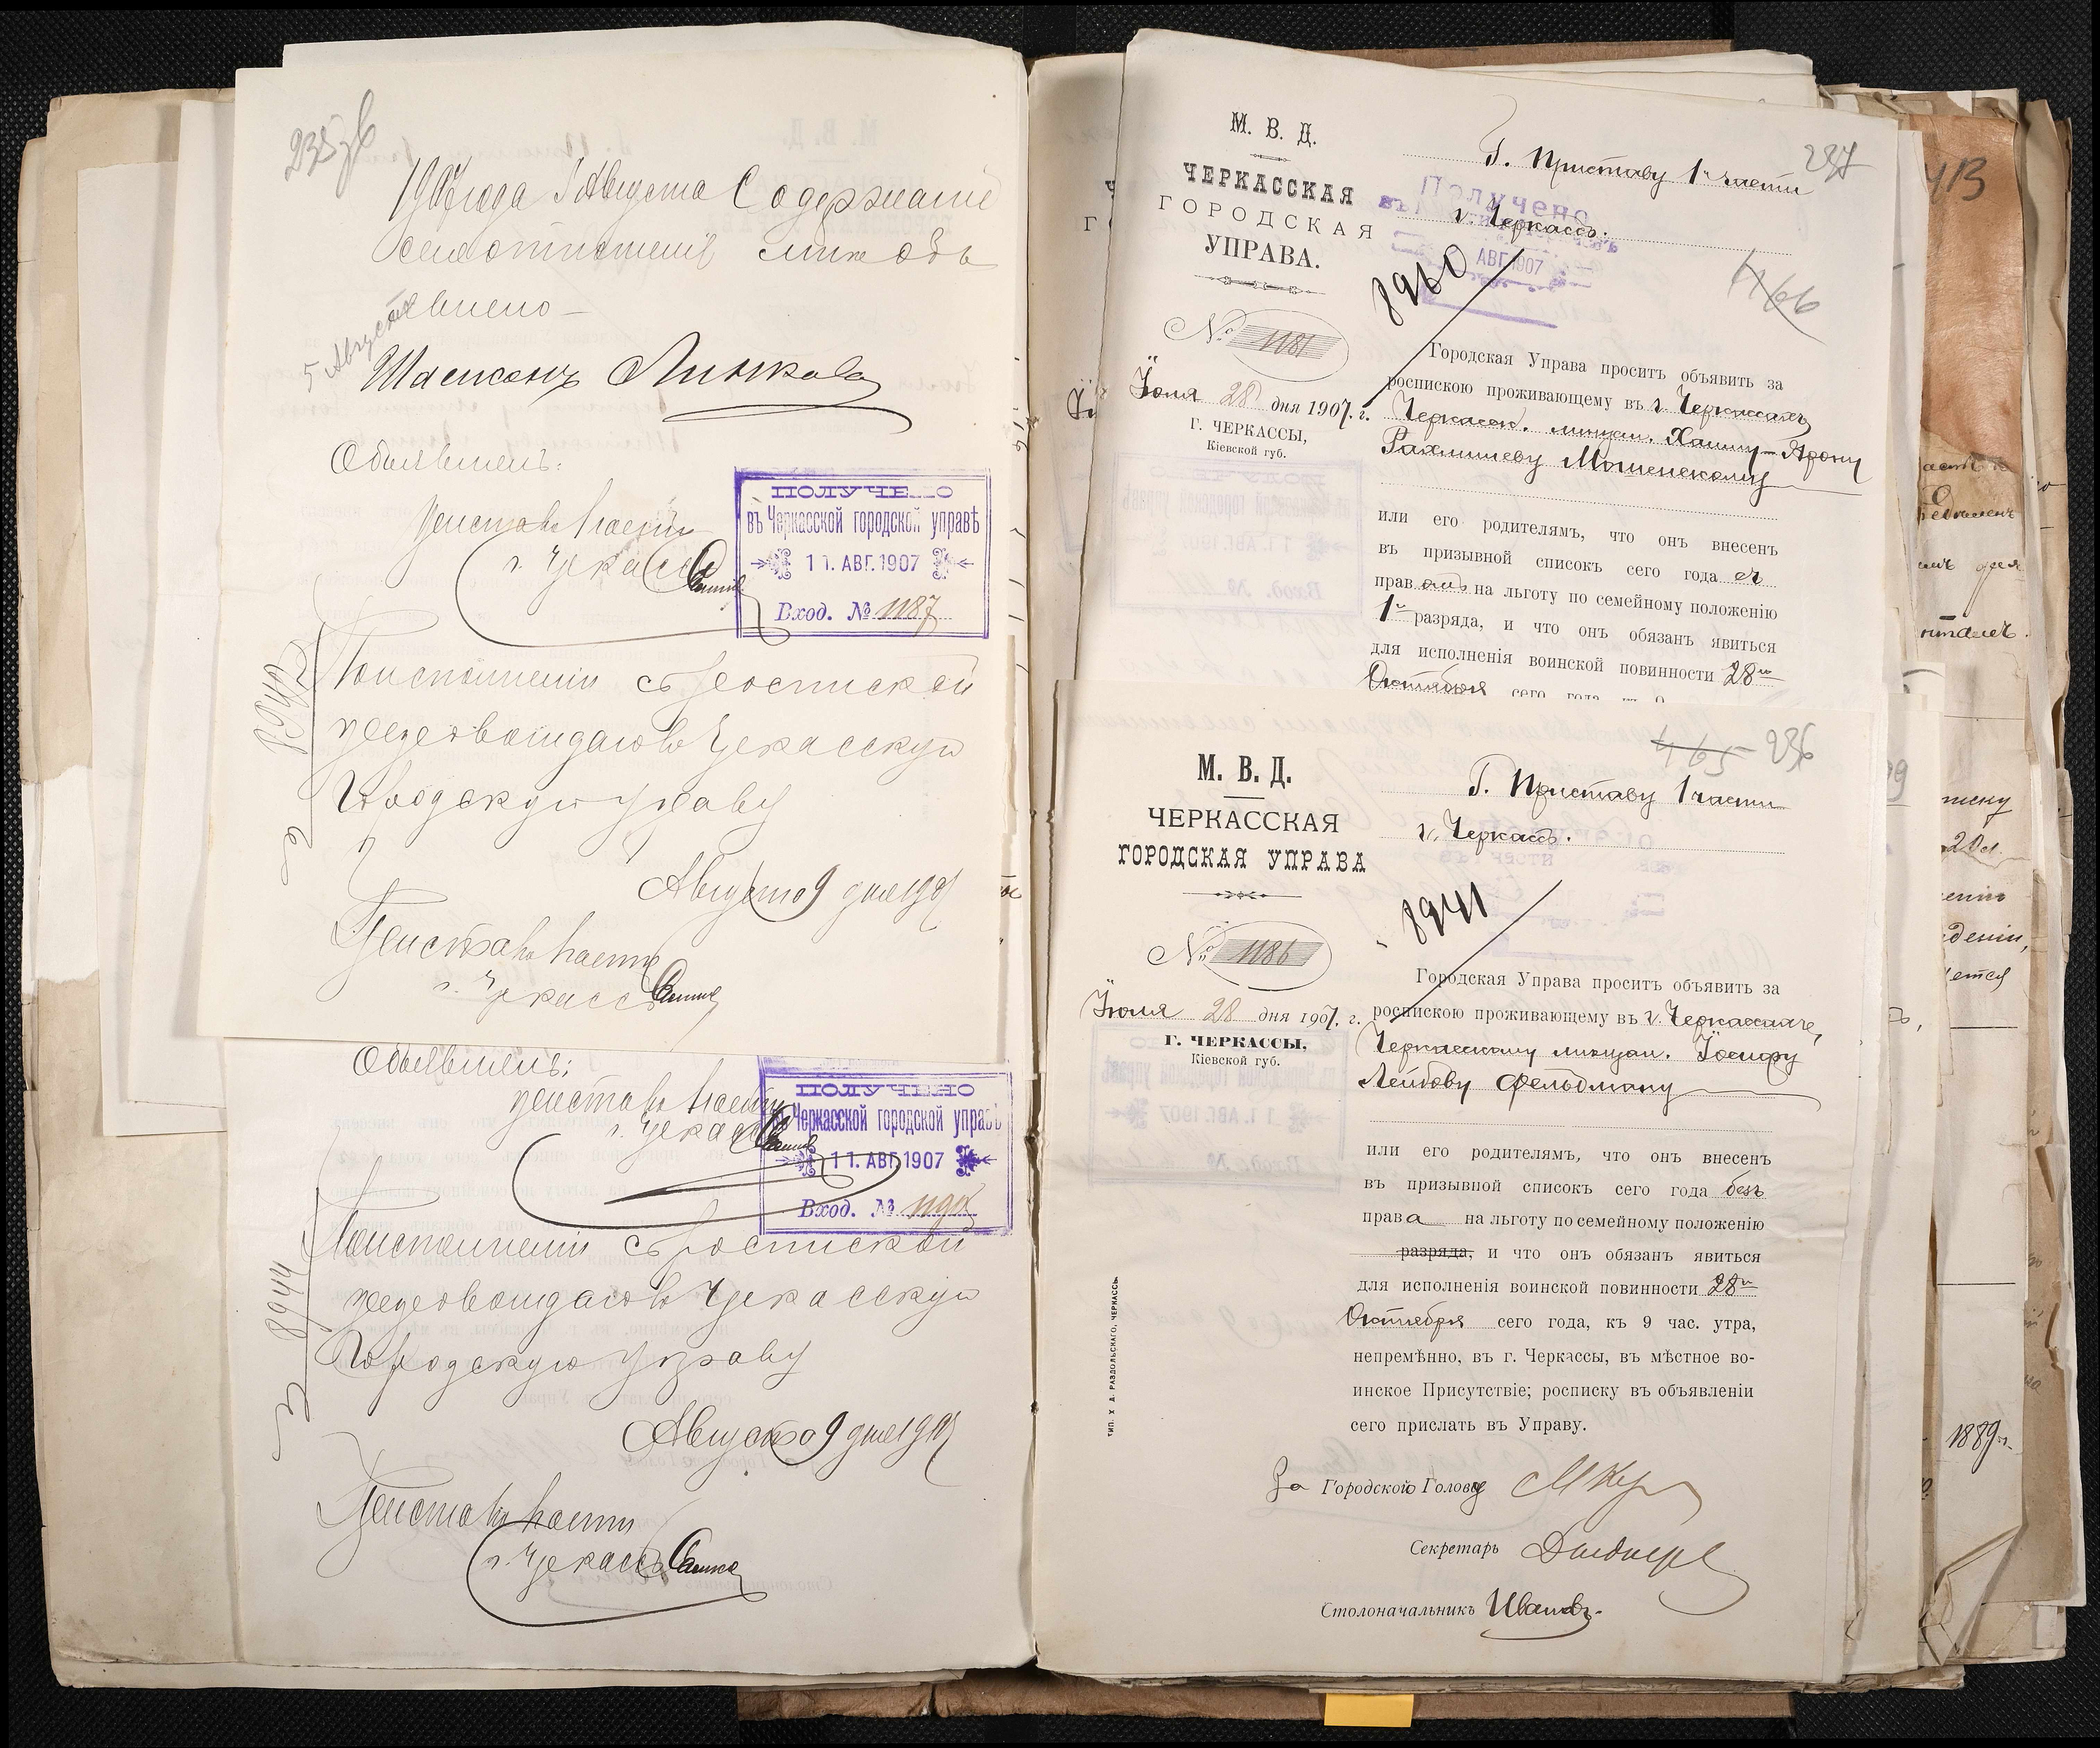 235 об
1907 года 5 Августа Содержаніе
сего отношенія мнѣ объ
явлено –
5 Августа
Шаенсонъ Линкова
Объявилъ:
Приставъ 1 части
г. Черкассъ
ПОЛУЧЕНО
въ Черкасской городской управѣ
11. АВГ. 1907
Вход. № 1187
По исполненіи съ роспиской
препровождаю въ Черкасскую
Городскую управу
Августа 9 дня 1907
Приставъ 1 части
г. Черкассъ
Объявилъ:
приставъ 1 части
г. Черкассъ
ПОЛУЧЕНО
въ Черкасской городской управѣ
11. АВГ. 1907
Вход. №
8944
По исполненіи съ роспиской
препровождаю въ Черкасскую
Городскую управу
Августа 9 дня 1907
Приставъ 1 части
г. Черкассъ
М. В. Д.
ЧЕРКАССКАЯ
ГОРОДСКАЯ
УПРАВА.
№ 1181
Іюля 28 дня 1907. г.
Г. ЧЕРКАССЫ,
Кіевской губ.
237
Г. Приставу 1й части
г. Черкассъ.
Получено
АВГ. 1907
8960
466
Городская Управа проситъ объявить за
роспискою проживающему въ г. Черкассахъ
Черкасск. мѣщан. Хаиму-Арону
Рахмилеву Мошенскому
или его родителямъ, что онъ внесенъ
въ призывной списокъ сего года съ
правомъ на льготу по семейному положенію
1й разряда, и что онъ обязанъ явиться
для исполненія воинской повинности 28го
Октября сего года
М. В. Д.
ЧЕРКАССКАЯ
ГОРОДСКАЯ УПРАВА
№ 1186
Іюля 28 дня 1907. г.
Г. ЧЕРКАССЫ,
Кіевской губ.
465 236
Г. Приставу 1 части
г. Черкассъ.
8941
Городская Управа проситъ объявить за
роспискою проживающему въ г. Черкассахъ,
Черкасскому мѣщан. Іосифу
Лейбову Фельдману
или его родителямъ, что онъ внесенъ
въ призывной списокъ сего года безъ
права на льготу по семейному положенію
разряда, и что онъ обязанъ явиться
для исполненія воинской повинности 28го
Октября сего года, къ 9 час. утра,
непремѣнно, въ г. Черкассы, въ мѣстное во-
инское Присутствіе; росписку въ объявленіи
сего прислать въ Управу.
За Городской Голову
Секретарь
Столоначальникъ Ивановъ.
ТИП. Х. Д. РАЗДОЛЬСКАГО, ЧЕРКАССЫ.
413
1889 г.